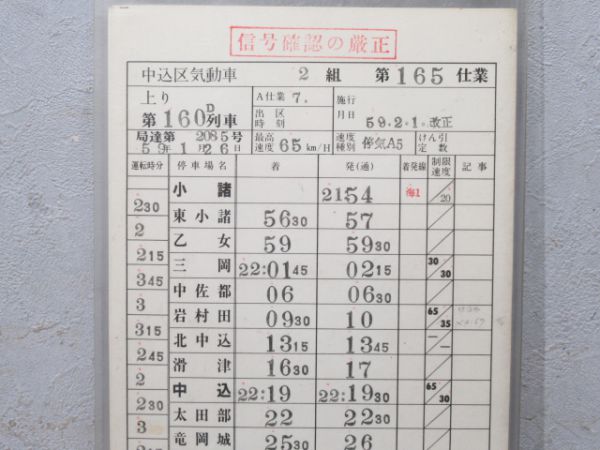 信号確認の厳正
中込区気動車 2 組 第165仕業
上り A仕業 7. 施行
第160D列車 出区時刻 月日 59.2.1.改正
局達第 2085号 最高速度 65 km/H 速度種別 停気A5 けん引定数
59年1月26日
運転時分 停車場名 着 発(通) 着発線 制限速度 記事
小諸 2154 海1 20
230
東小諸 5630 57
2
乙女 59 5930
215
三岡 22:0145 0215 30 30
345
中佐都 06 0630
3
岩村田 0930 10 65 35
315
北中込 1315 1345
245
滑津 1630 17
2
中込 22:19 22:1930 65 30
230
太田部 22 2230
3
竜岡城 2530 26